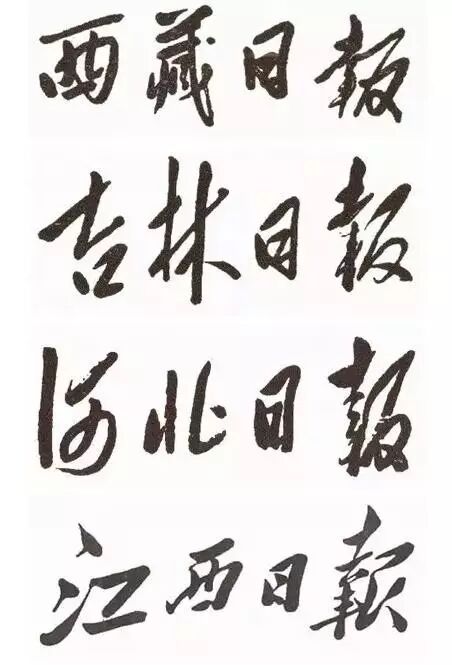 西藏日報
吉林日報
河北日報
江西日報